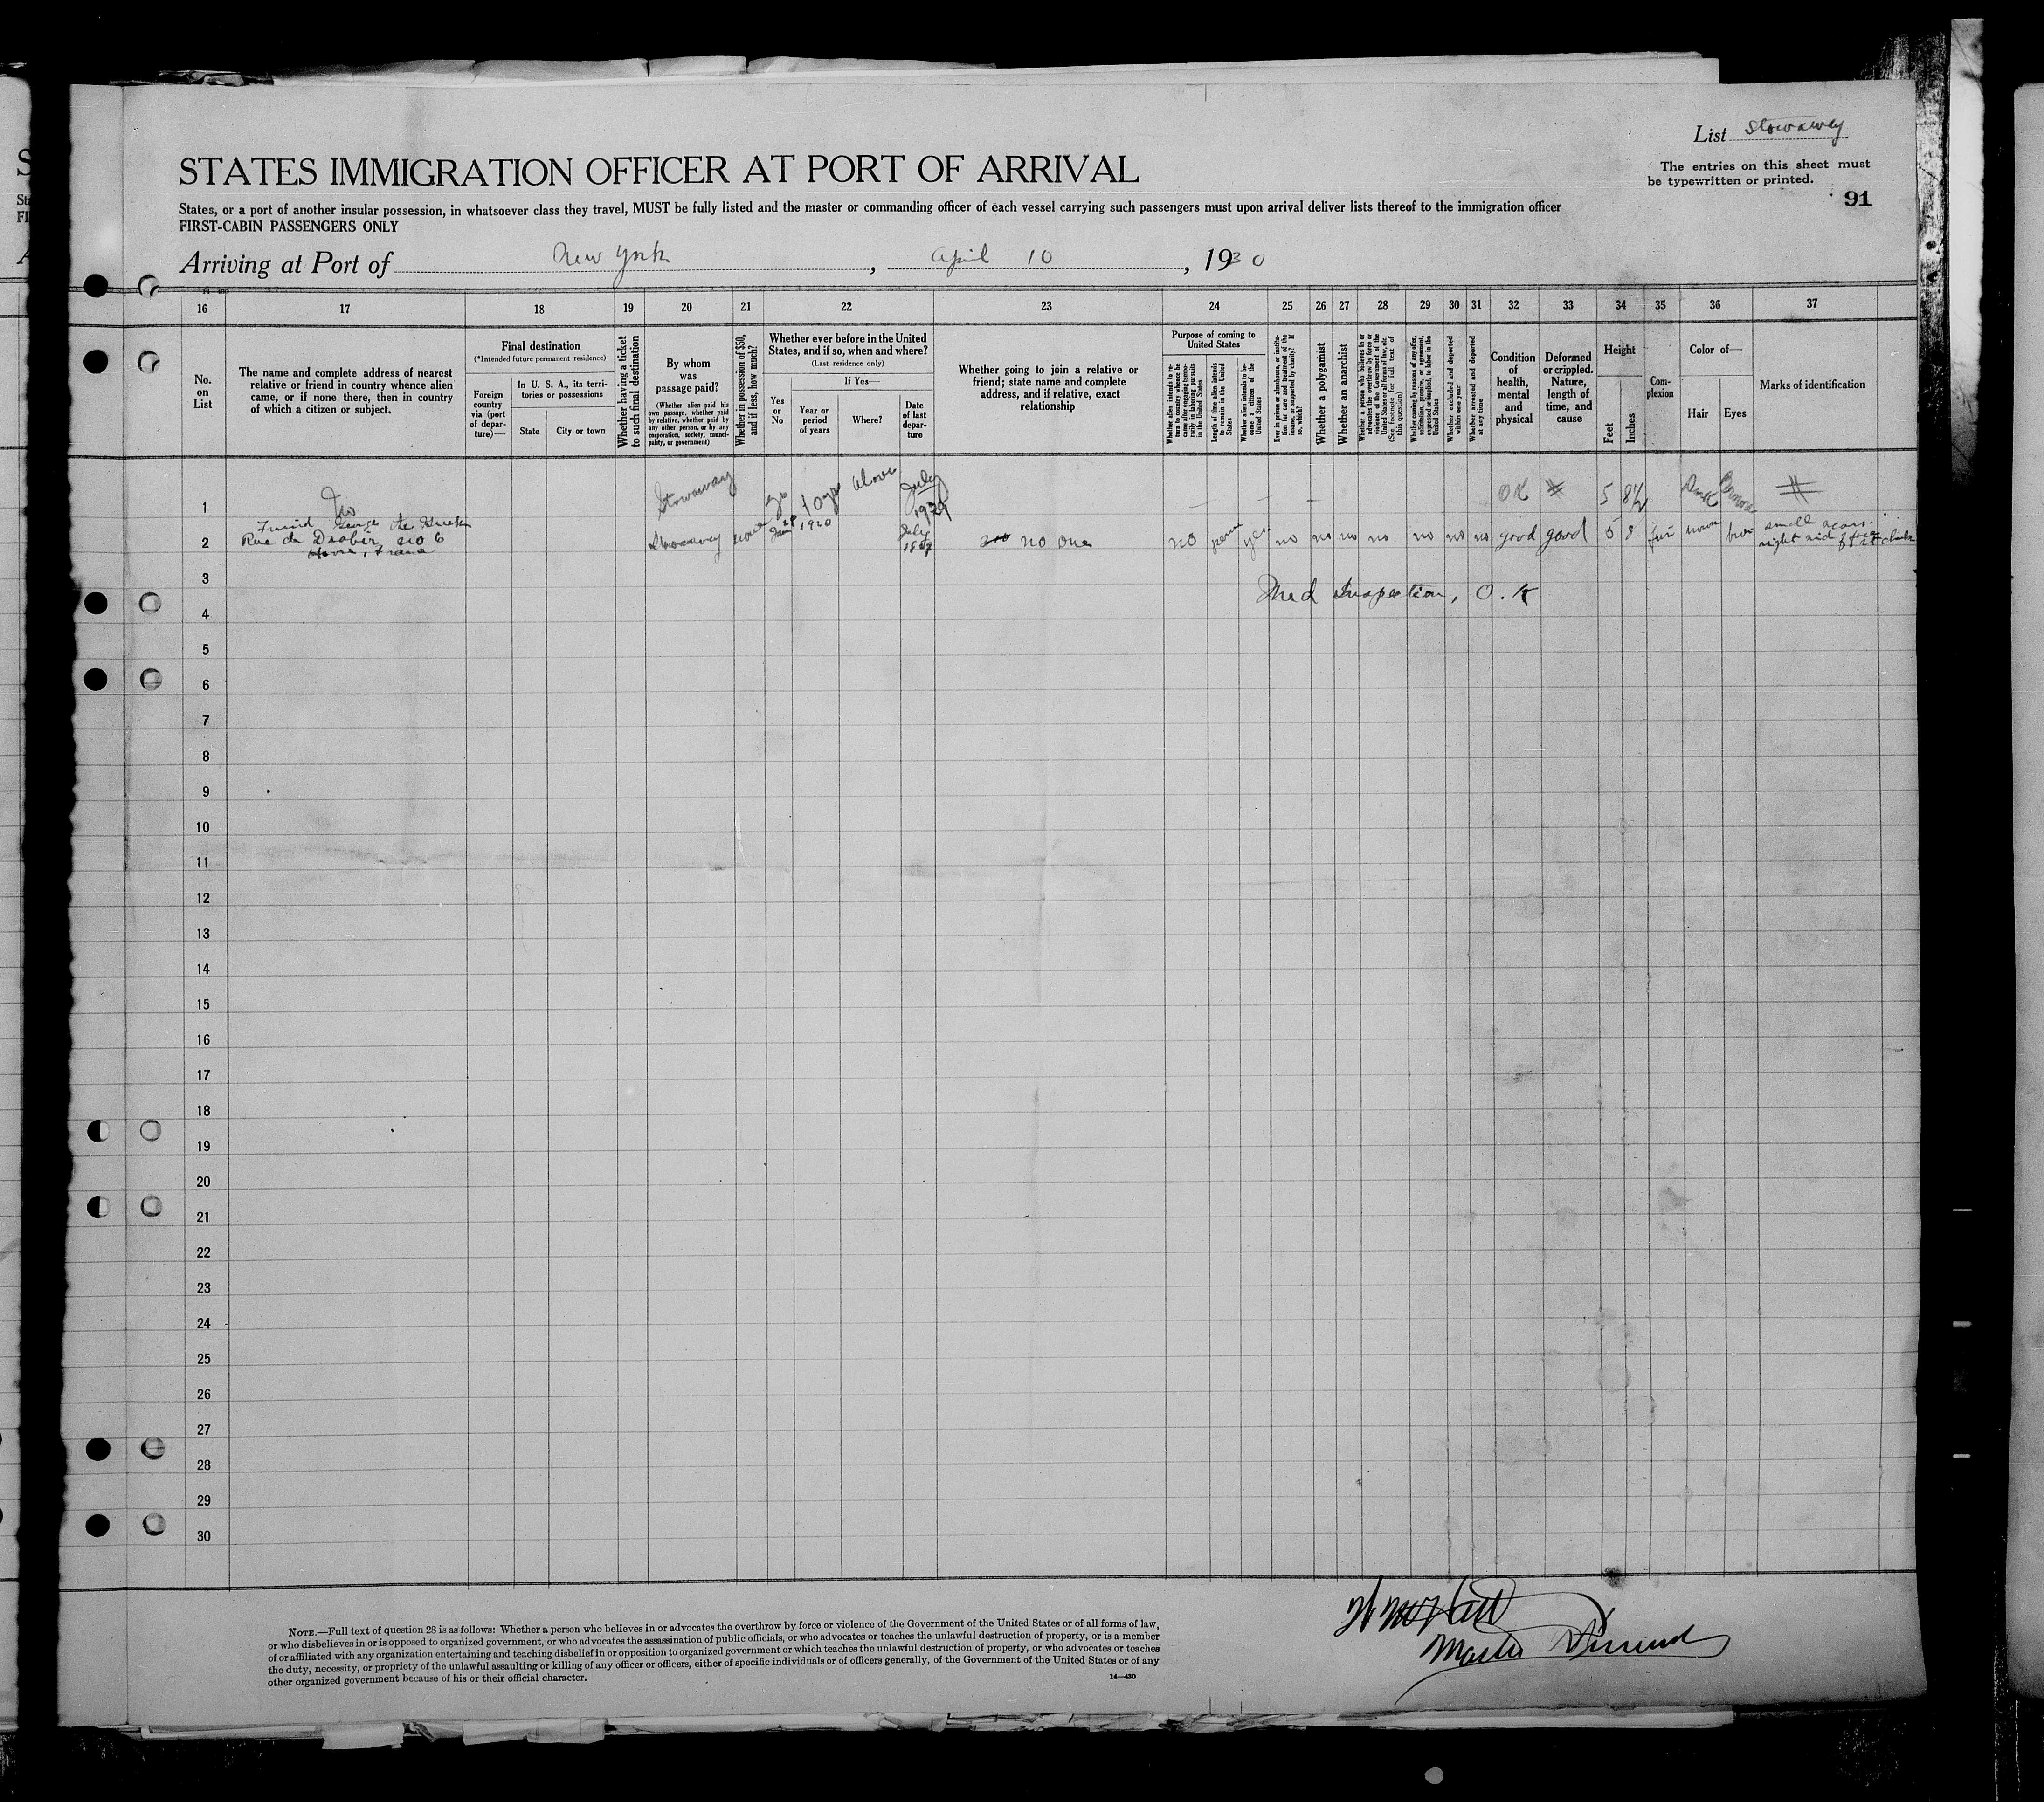 List Stowaway
The entries on this sheet must
be typewritten or printed.
91
STATES IMMIGRATION OFFICER AT PORT OF ARRIVAL
States, or a port of another insular possession, in whatsoever class they travel, MUST be fully listed and the master or commanding officer of each vessel carrying such passengers must upon arrival deliver lists thereof to the immigration officer
FIRST-CABIN PASSENGERS ONLY
Arriving at Port of New York, April 10, 1930
16 17 18 19 20 21 22 23 24 25 26 27 28 29 30 31 32 33 34 35 36 37
No.
on
List
The name and complete address of nearest
relative or friend in country whence alien
came, or if none there, then in country
of which a citizen or subject.
Final destination
(*Intended future permanent residence)
Foreign
country
via (port
of depar-
ture)—
In U. S. A., its terri-
tories or possessions
State
City or town
Whether having a ticket
to such final destination
By whom
was
passage paid?
(Whether alien paid his
own passage, whether paid
by relative, whether paid by
any other person, or by any
corporation, society, munici-
pality, or government)
Whether in possession of $50,
and if less, how much?
Whether ever before in the United
States, and if so, when and where?
(Last residence only)
Yes
or
No
If Yes—
Year or
period
of years
Where?
Date
of last
depar-
ture
Whether going to join a relative or
friend; state name and complete
address, and if relative, exact
relationship
Purpose of coming to
United States
Whether alien intends to re-
turn to country whence he
came after engaging tempo-
rarily in laboring pursuits
in the United States
Length of time alien intends
to remain in the United
States
Whether alien intends to be-
come a citizen of the
United States
Ever in prison or almshouse, or institu-
tion for care and treatment of the
insane, or supported by charity? If
so, which?
Whether a polygamist
Whether an anarchist
Whether a person who believes in or
advocates the overthrow by force or
violence of the Government of the
United States or all forms of law, etc.
(See footnote for full text of
this question)
Whether coming by reasons of any offer,
solicitation, promise, or agreement,
expressed or implied, to labor in the
United States
Whether excluded and deported
within one year
Whether arrested and deported
at any time
Condition
of
health,
mental
and
physical
Deformed
or crippled.
Nature,
length of
time, and
cause
Height
Feet
Inches
Com-
plexion
Color of—
Hair
Eyes
Marks of identification
1 No Stowaway yes 10 yrs above July 1929 — — — OK 5 8½ Dark Brown
2 Friend George the Greek
Rue de no 6
Havre, France
Stowaway none 1920 July no one no perm yes no no no no no no no good good 5 8 fair brown bro small scars
right
3
Med Inspection, O.K
4
5
6
7
8
9
10
11
12
13
14
15
16
17
18
19
20
21
22
23
24
25
26
27
28
29
30
NOTE.—Full text of question 28 is as follows: Whether a person who believes in or advocates the overthrow by force or violence of the Government of the United States or of all forms of law,
or who disbelieves in or is opposed to organized government, or who advocates the assassination of public officials, or who advocates or teaches the unlawful destruction of property, or is a member
of or affiliated with any organization entertaining and teaching disbelief in or opposition to organized government or which teaches the unlawful destruction of property, or who advocates or teaches
the duty, necessity, or propriety of the unlawful assaulting or killing of any officer or officers, either of specific individuals or of officers generally, of the Government of the United States or of any
other organized government because of his or their official character.
14—430
Master